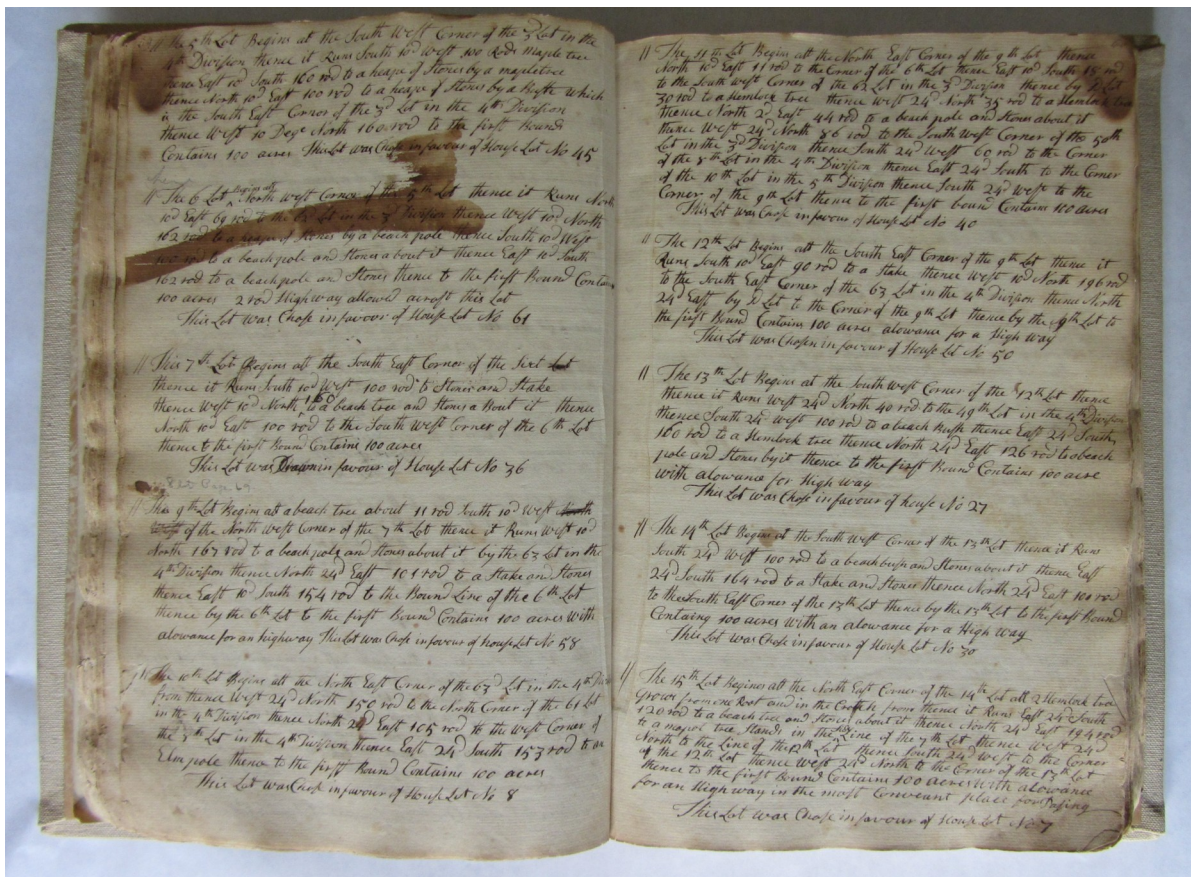 The 5th Lot Begins at the South West Corner of the 3d Lot in the
4th Division thence it Runs South 10d West 100 Rods maple tree
thence East 10d South 160 rod to a heape of Stones by a mapletree
thence North 10d East 100 rod to a heap of Stones by a Bush which
is the South East Cornor of the 3d Lot in the 4th Division
thence West 10 Dege North 160 rod to the first Bound
Contains 100 acres This Lot was Chose in favour of House Lot No 45
The 6 Lot Begins att North west Cornor of the 5th Lot thence it Runs North
10d East 69 rod to the 62 Lot in the 3d Division thence West 10d North
162 rod to a heape of Stones by a beach pole thence South 10d West
100 rod to a beachpole and Stones about it thence East 10d South
162 rod to a beachpole and Stones thence to the first Bound Contains
100 acres 2 rod Highway allowed acrost this Lot
This Lot was Chose in favour of House Lot No 61
This 7th Lot Begins att the South East Cornor of the Sixt Lot
thence it Runs South 10d West 100 rod to Stones and Stake
thence West 10d North 160 to a beach tree and Stones a Bout it thence
North 10d East 100 rod to the South West Corner of the 6th Lot
thence to the first Bound Contains 100 acres
This Lot was Drawn in favour of House Lot No 36
The 9th Lot Begins att a beach tree about 11 rod South 10d West North
West of the North west Corner of the 7th Lot thence it Runs West 10d
North 167 rod to a beach pole and Stones about it by the 63 Lot in the
4th Division thence North 24d East 101 rod to a Stake and Stones
thence East 10d South 154 rod to the Bound Line of the 6th Lot
thence by the 6th Lot to the first Bound Contains 100 acres with
alowance for an highway This Lot was Chose in favour of House Lot No 58
The 10th Lot Begins att the North East Corner of the 63d Lot in the 4th Divi
from thence West 24d North 150 rod to the North Corner of the 61 Lot
in the 4th Division thence North 24d East 105 rod to the West Corner of
the 8th Lot in the 4th Division thence East 24d South 153 rod to an
Elm pole thence to the first Bound Contains 100 acres
This Lot was Chose in favour of House Lot No 8
The 11th Lot Begins att the North East Corner of the 9th Lot thence
North 10d East 11 rod to the Corner of the 6th Lot thence East 10d South 15 rod
to the South west Corner of the 62 Lot in the 3d Division thence by Lot
30 rod to a Hemlock tree thence West 24d North 35 rod to a Hemlock tree
thence North 2d East 44 rod to a beach pole and Stones about it
thence West 24d North 86 rod to the South West Corner of the 50th
Lot in the 3d Division thence South 24d West 60 rod to the Corner
of the 8th Lot in the 4th Division thence East 24d South to the Corner
of the 10th Lot in the 5th Division thence South 24d West to the
Corner of the 9th Lot thence to the first bound Contains 100 acres
This Lot was Chose in favour of House Lot No 40
The 12th Lot Begins att the South East Corner of the 9th Lot thence it
Runs South 10d East 90 rod to a Stake thence west 10d North 196 rod
to the South East Corner of the 63 Lot in the 4th Division thence North
24d East by Lot to the Corner of the 9th Lot thence by the 9th Lot to
the first Bound Contains 100 acres alowance for a High way
This Lot was Chosen in favour of House Lot No 50
The 13th Lot Begins at the South West Corner of the 12th Lot thence
thence it Runs West 24d North 40 rod to the 49th Lot in the 4th Division
thence South 24d West 100 rod to a beach Bush thence East 24d South,
160 rod to a Hemlock tree thence North 24d East 126 rod to a beach
pole and Stones by it thence to the first Bound Contains 100 acre
with alowance for High way
This Lot was Chose in favour of house No 27
The 14th Lot Begins at the South West Corner of the 13th Lot thence it Runs
South 24d West 100 rod to a beachbush and Stones about it thence East
24d South 164 rod to a Stake and Stones thence North 24d East 101 rod
to the South East Corner of the 13th Lot thence by the 13th Lot to the first Bound
Containg 100 acres with an alowance for a High way
This Lot was Chose in favour of House Lot No 30
The 15th Lot Begines att the North East Corner of the 14th Lot att 2 Hemlock trees
Grows from one Root and in the Crotch from thence it Runs East 24d South
120 rod to a beach tree and Stones about it thence North 24d East 194 rod
to a mapol tree Stands in the Line of the 7th Lot thence West 24d
North to the Line of the 12th Lot thence South 24d West to the Corner
of the 12th Lot thence West 24d North to the Corner of the 13th Lot
thence to the first Bound Contains 100 acres with alowance
for an High way in the most Conveant place for Pasing
This Lot was Chose in favour of House Lot No 7